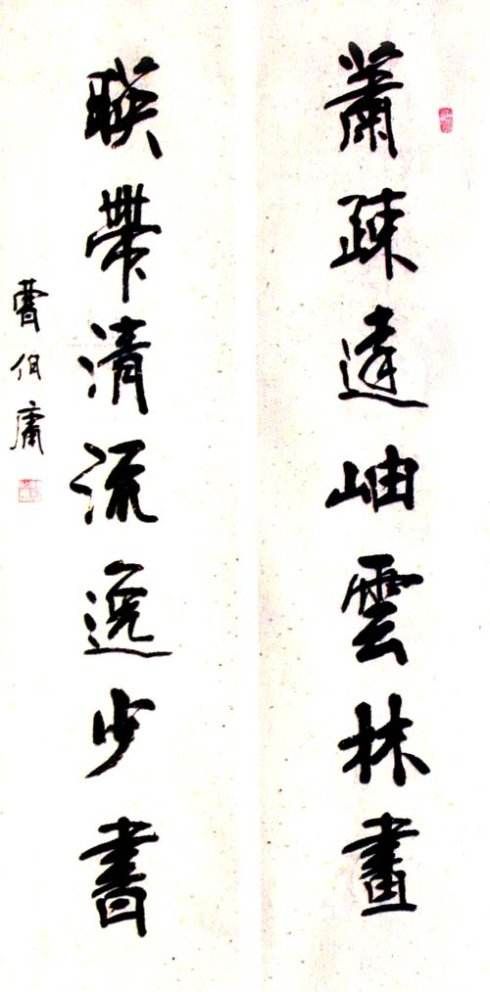 蕭疎遠岫雲林畫
暎帶清流逸少書
曹伯庸